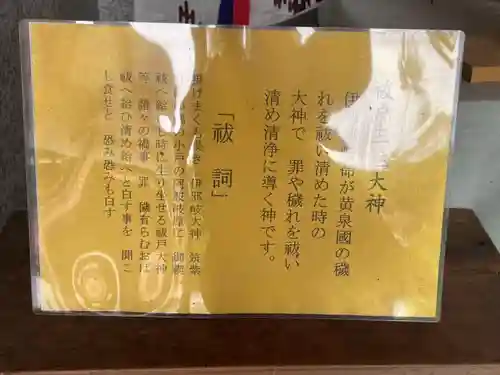 祓戸 大神
伊 が黄泉國の穢
れを祓い清めた時の
大神で 罪や穢れを祓い
清め清浄に導く神です。
「祓 詞」
掛けまくも畏き 伊邪岐大神 筑紫
の 小戸の阿波岐原に 御禊
祓へ給 し時に生り坐せる祓戸大神
等 諸々の禍事 罪 穢有らむをば
祓へ給ひ清め給へと白す事を 聞こ
し食せと 恐み恐みも白す